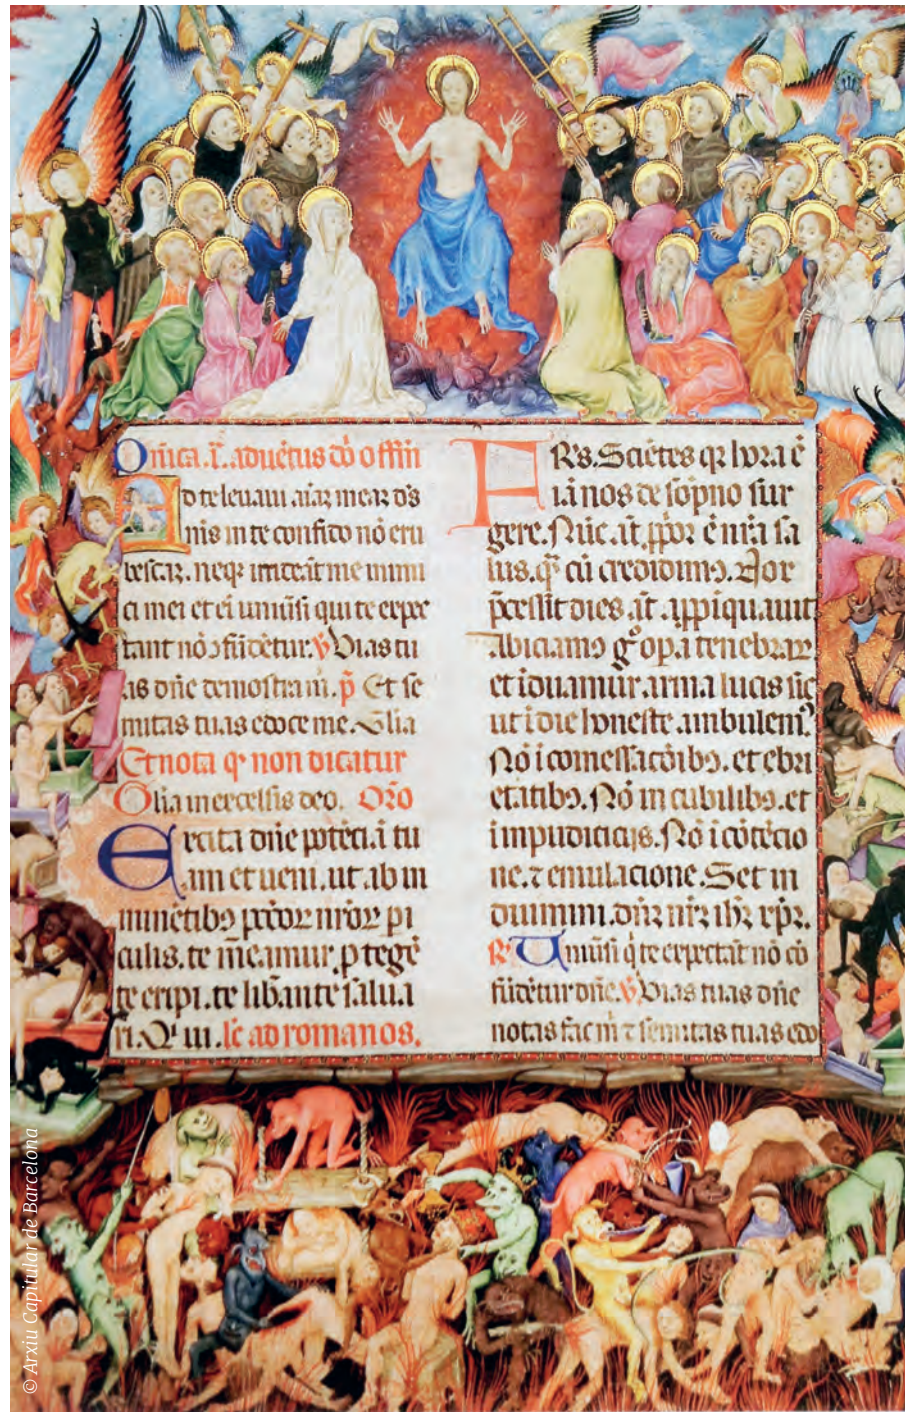 Dñica .i. aduẽtus dñi offm̃
Ad te leuaui aĩaz meaz ds̃
m̃s in te confido nõ eru
bescaz. neqz irrideãt me inimi
ci mei et eĩ unius̃i qui te expec
tant nõ ɔfũdẽtur. ℣ Vias tu
as dñe demostra m̃. p̃ Et se
mitas tuas edoce me. Glia
Et nota qꝫ non dicatur
Glia in excelsis deo. Orõ
Excita dñe potẽciã tu
am et ueni. ut ab im
minẽtibꝯ pctõꝝ nroꝝ pi
culis. te m̃eamur. ptegẽ
te eripi. te libãnte salua
ri. Qi ui. lc̃ ad romanos.
FRs. Sciẽtes qꝛ hora ẽ
iã nos de sõpno sur
gere. Nũc aũt ꝓpoꝛ ẽ nrã sa
lus. qꝫ cũ credidimꝯ. Nox
p̃cessit dies. aũt appĩquauit
Abiciamꝯ gº opa tenebraꝝ
et ĩduamur arma lucis sic
ut ĩ die honeste ambulemꝯ.
Nõ ĩ comessacõibꝯ. et ebri
etatibꝯ. Nõ in cubilibꝯ. et
ĩmpudiciciis. Nõ ĩ cõtẽcio
ne. ⁊ emulacione. Set in
duimini. dñz nrz ihz xpz.
℟ Uniuᷤsi q̃ te expectãt nõ cõ
fũdẽtur dñe. ℣ Vias tuas dñe
notas fac m̃ ⁊ semitas tuas edo
© Arxiu Capitular de Barcelona